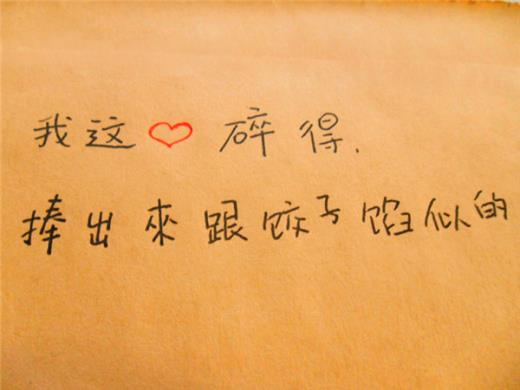 我这♡碎得.
捧出來跟饺子馅似的